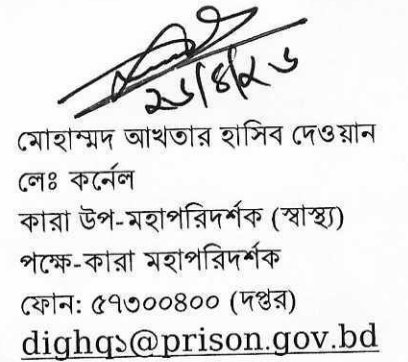 ২৬/৪/২৬
মোহাম্মদ আখতার হাসিব দেওয়ান
লেঃ কর্নেল
কারা উপ-মহাপরিদর্শক (স্বাস্থ্য)
পক্ষে-কারা মহাপরিদর্শক
ফোন: ৫৭৩০০৪০০ (দপ্তর)
dighq১@prison.gov.bd